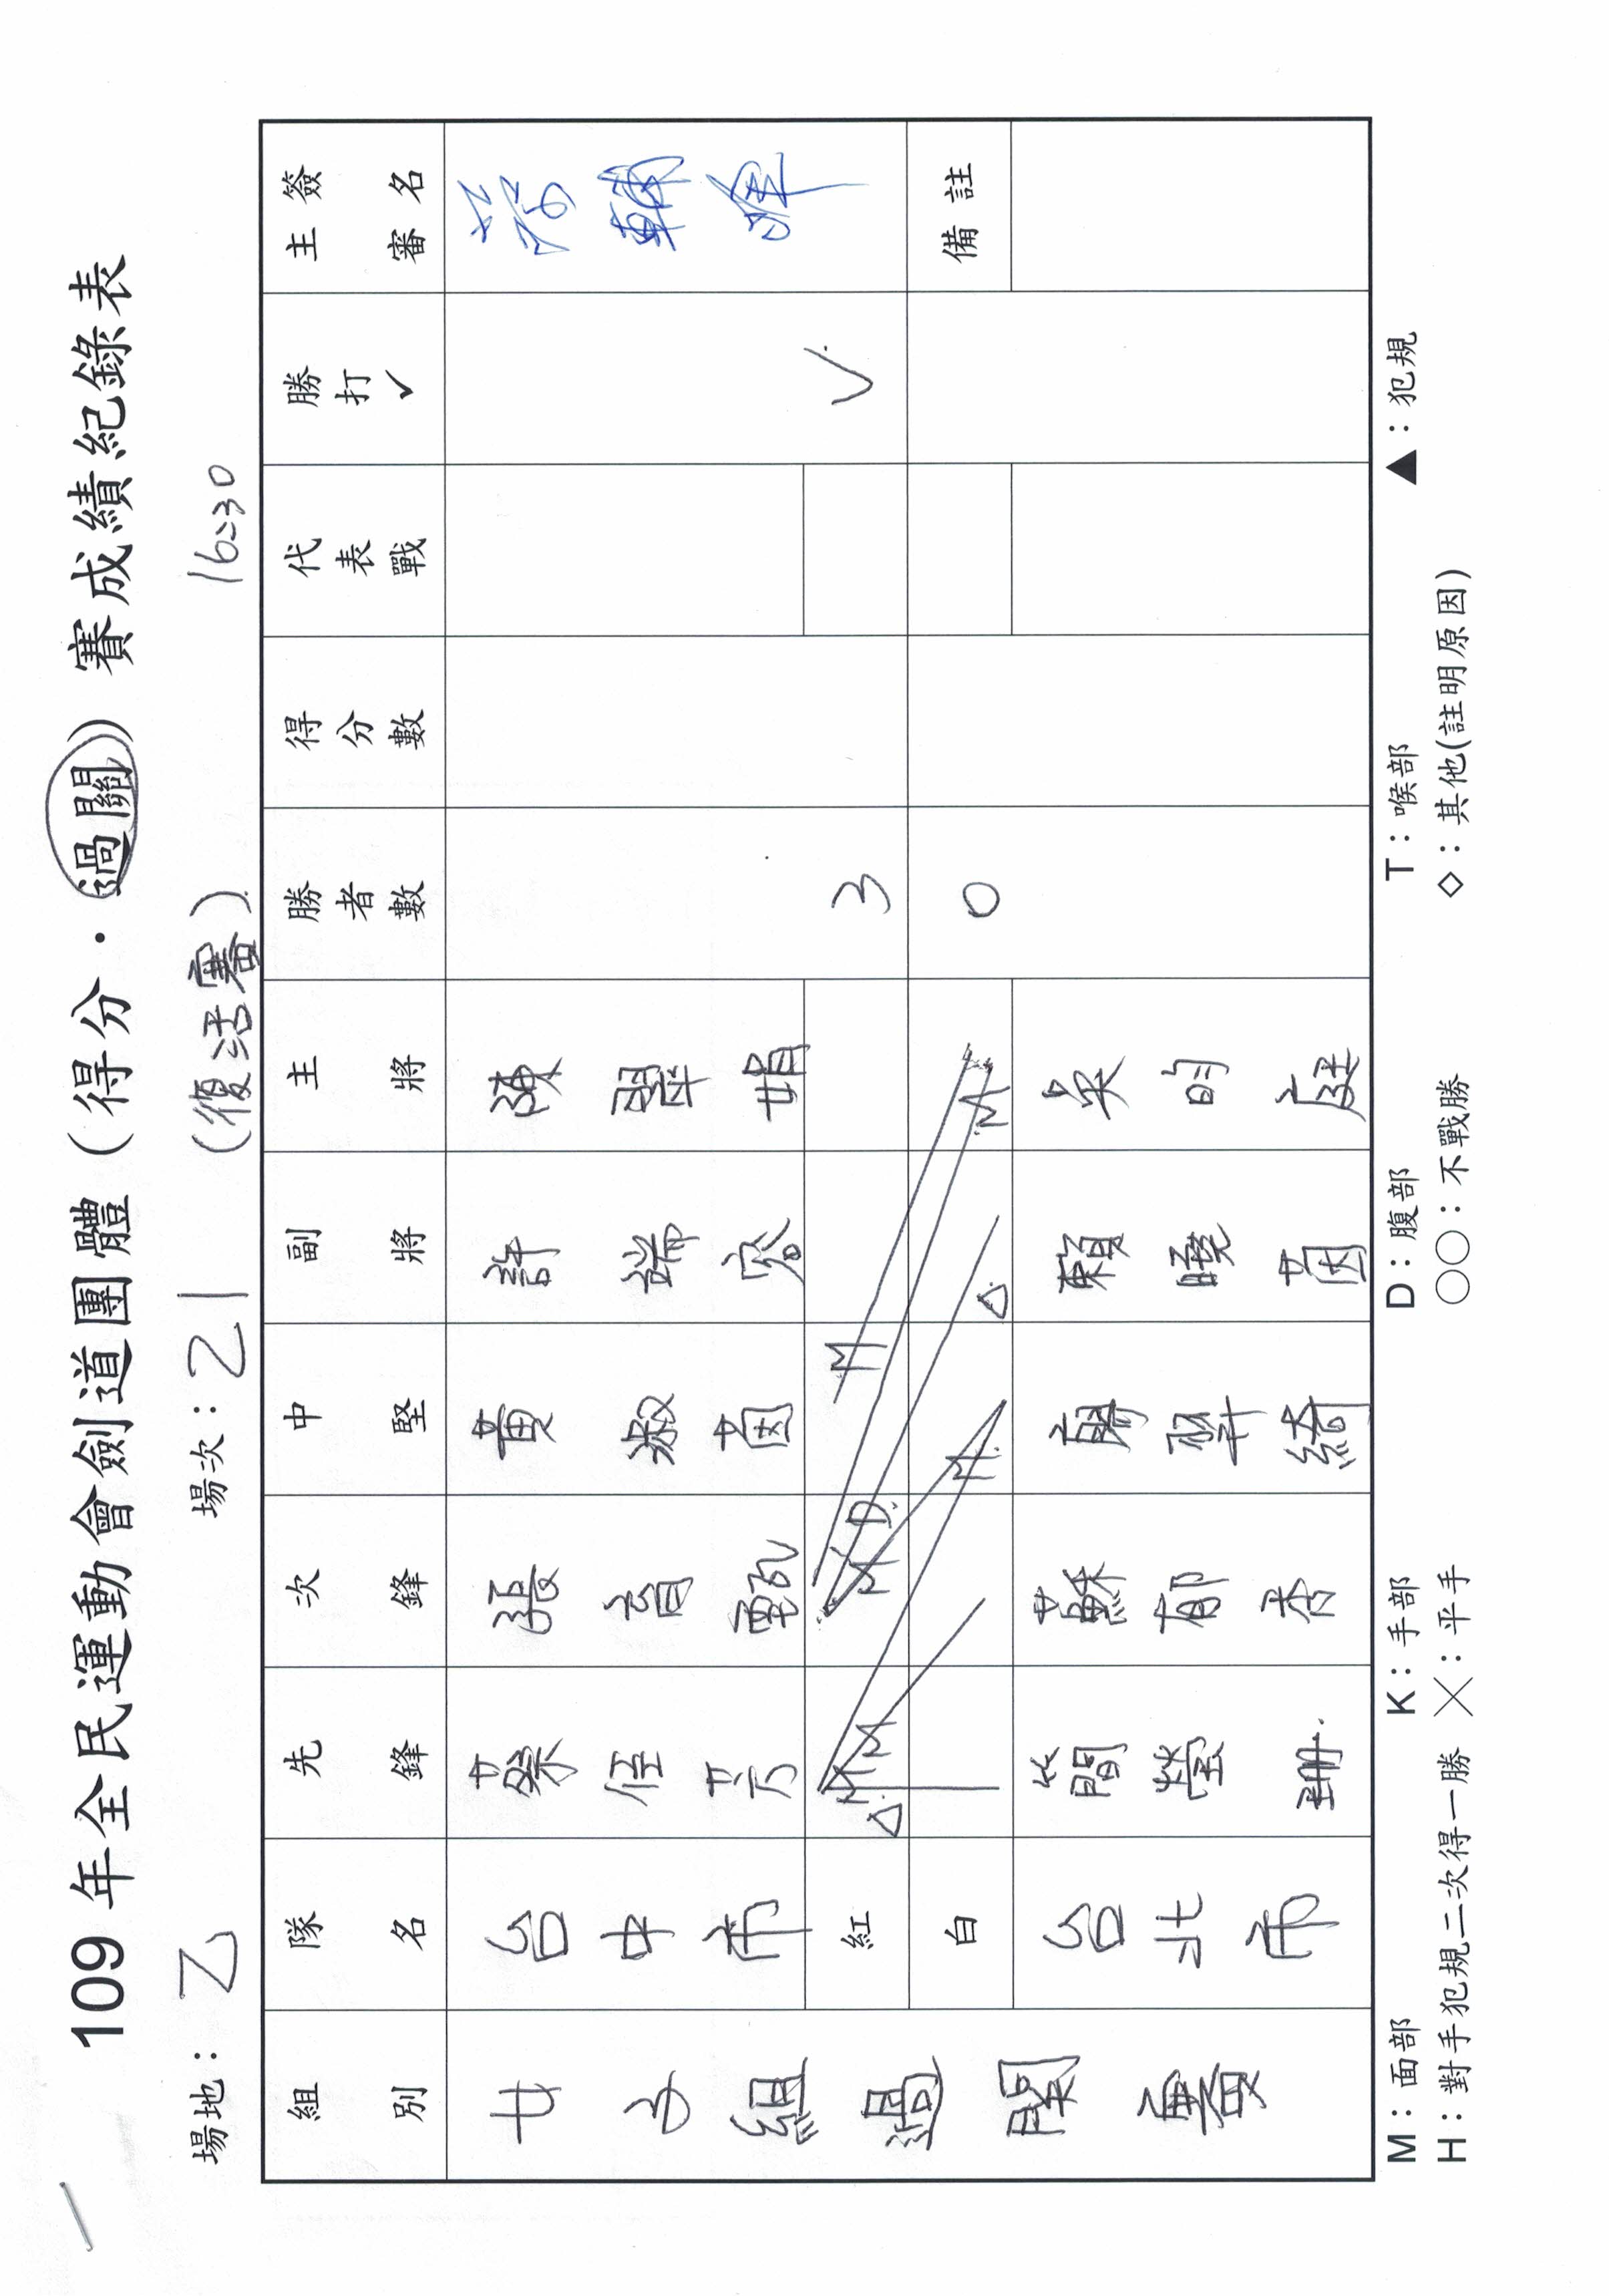 109 年全民運動會劍道團體（得分．過關）賽成績紀錄表
場地：乙 場次：21 (復活賽) 16:30
組別 隊名 先鋒 次鋒 中堅 副將 主將 勝者數 得分數 代表戰 勝打✓ 主審簽名
女子組過關賽
台中市 蔡侄芳 張育甄 黃淑茵 許端容 陳翠娟
紅 △ M M M D M 3 ✓
白 M △ M 0 備註
台北市 簡瑩珊 蘇郁香 賴曉茵 吳昀庭
M：面部 K：手部 D：腹部 T：喉部 ▲：犯規
H：對手犯規二次得一勝 ╳：平手 ○○：不戰勝 ◇：其他(註明原因)